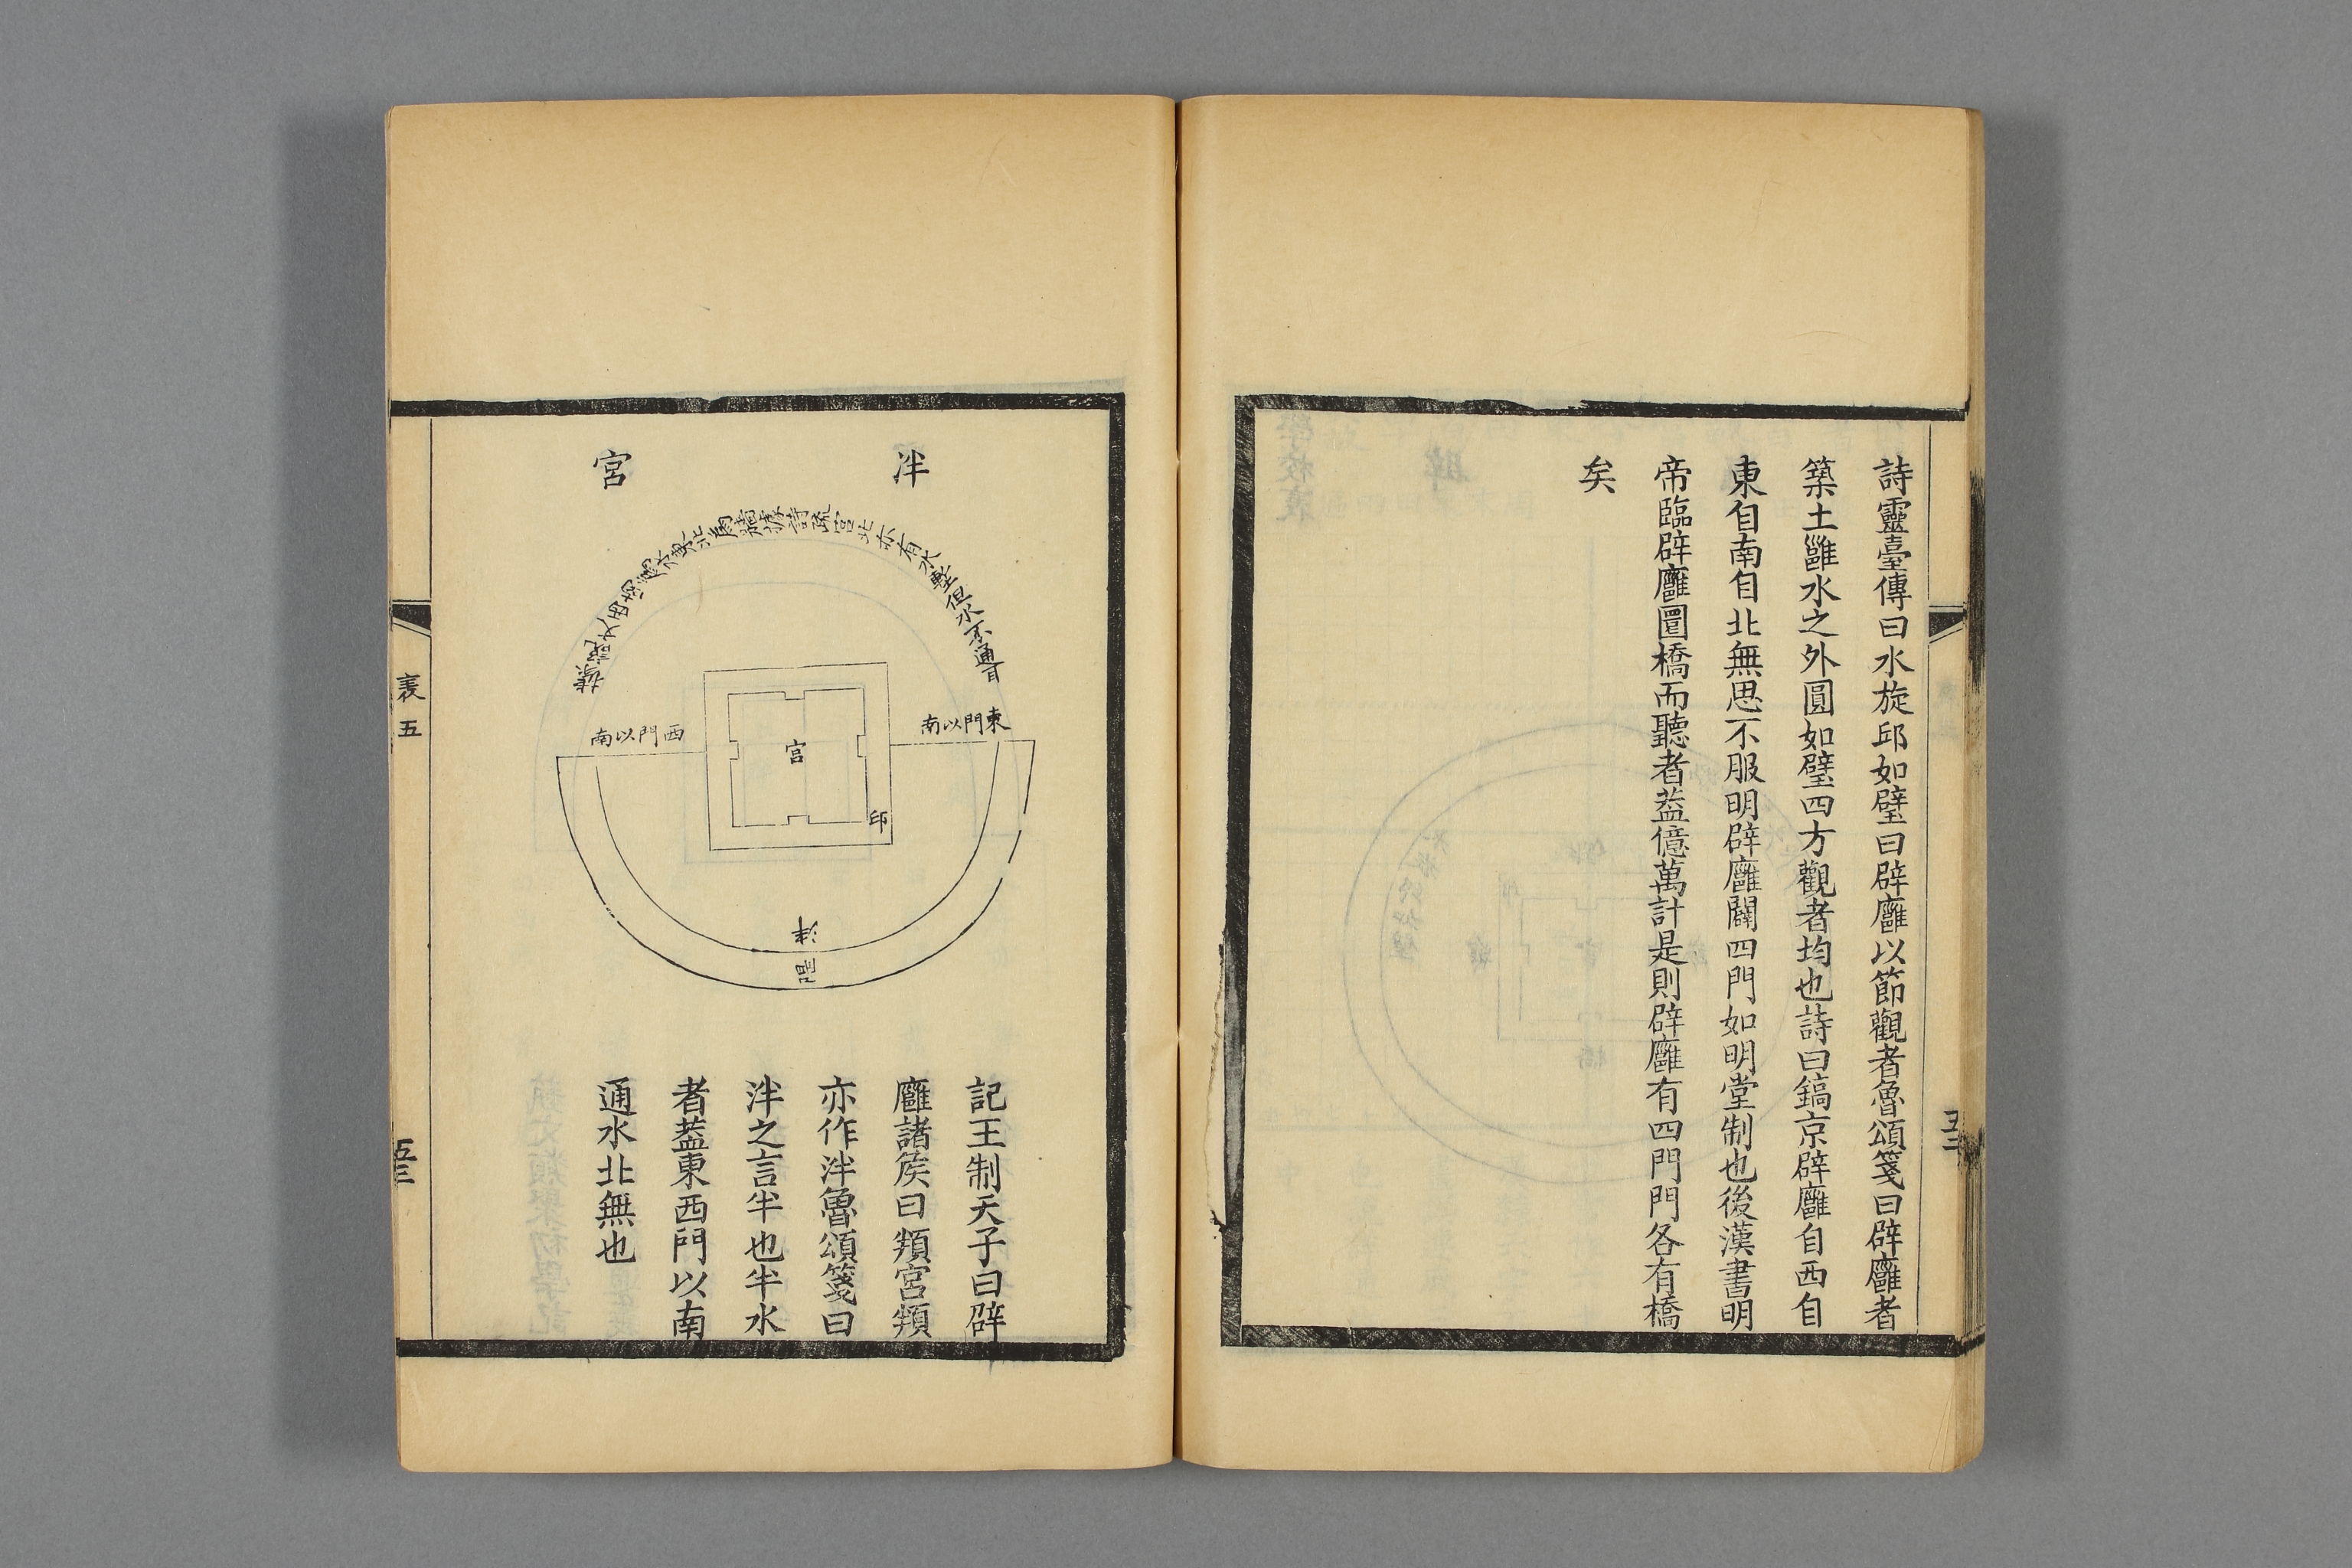 詩靈臺傳曰水旋邱如璧曰辟廱以節觀者魯頌箋曰辟廱者
築土雝水之外圓如璧四方觀者均也詩曰鎬京辟廱自西自
東自南自北無思不服明辟廱闢四門如明堂制也後漢書明
帝臨辟廱圜橋而聽者葢億萬計是則辟廱有四門門各有橋
矣
泮宮
據說文西南爲水東北爲牆據詩疏宮北亦有水壍但水不通耳
東門以南
西門以南
宮
邱
泮
記王制天子曰辟
廱諸矦曰頖宮頖
亦作泮魯頌箋曰
泮之言半也半水
者葢東西門以南
通水北無也
表五